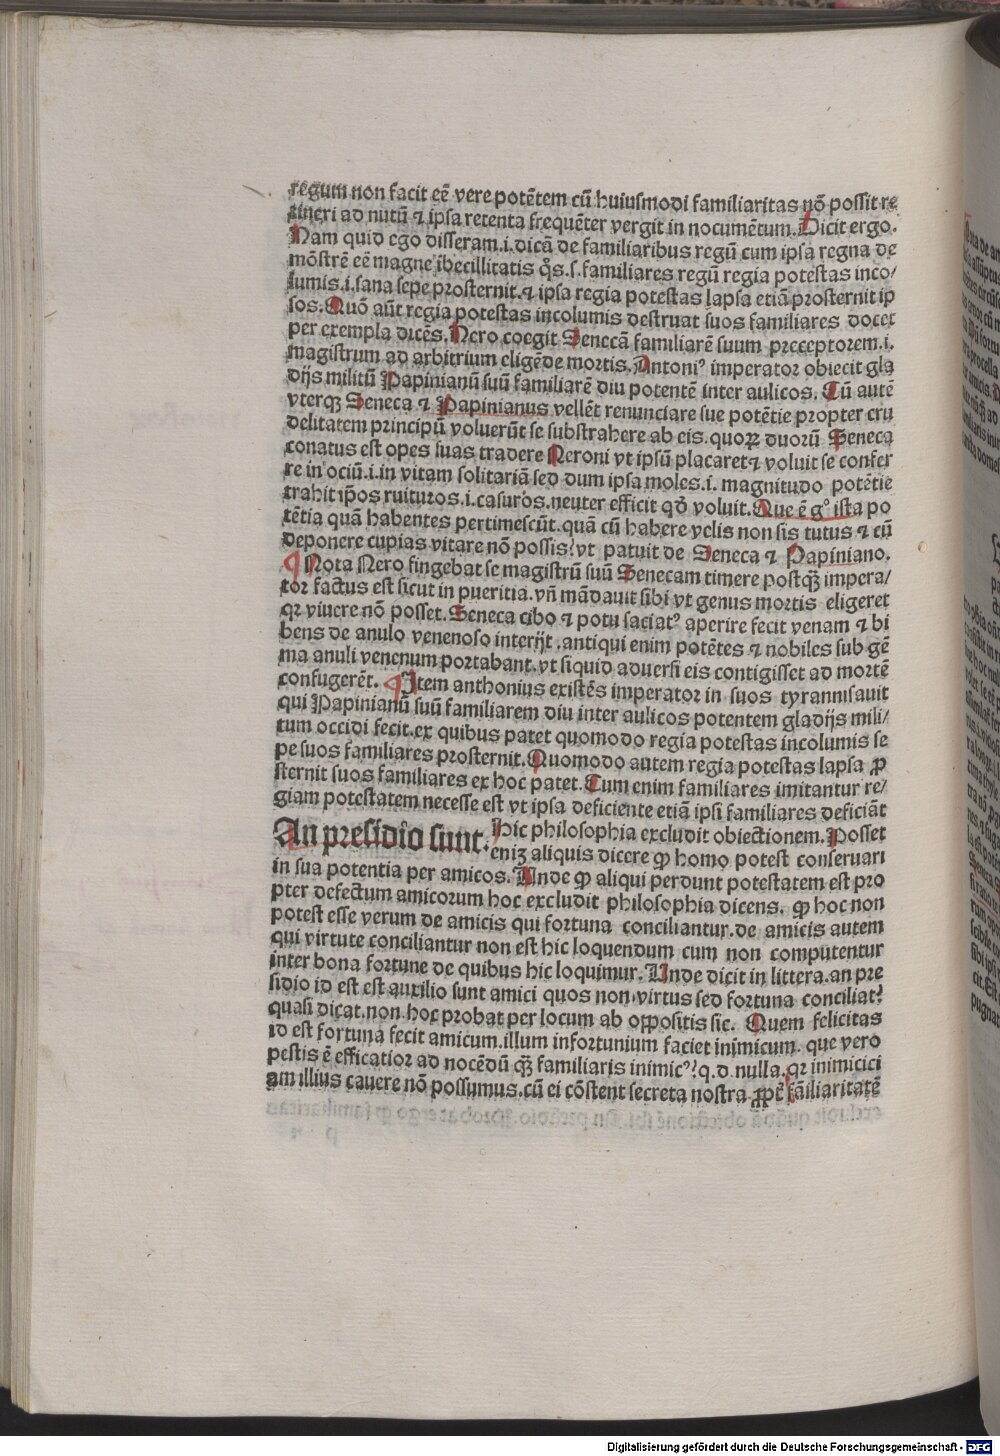 regum non facit eē vere potētem cū huiusmodi familiaritas nō possit re
tineri ad nutū ⁊ ipsa retenta frequēter vergit in nocumētum. Dicit ergo.
Nam quid ego disseram .i. dicā de familiaribus regū cum ipsa regna de
mōstrē eē magne ībecillitatis qͦs .s. familiares regū regia potestas inco/
lumis .i. sana sepe prosternit. ⁊ ipsa regia potestas lapsa etiā prosternit ip
sos. Quō aūt regia potestas incolumis destruat suos familiares docet
per exempla dicēs. Nero coegit Senecā familiarē suum preceptorem .i.
magistrum ad arbitrium eligēde mortis. Antoniꝰ imperator obiecit gla
dijs militū Papinianū suū familiarē diu potentē inter aulicos. Cū autē
vterqꝫ Seneca ⁊ Papinianus vellēt renunciare sue potētie propter cru
delitatem principū voluerūt se substrahere ab eis. quoꝝ duorū Seneca
conatus est opes suas tradere Neroni vt ipsū placaret ⁊ voluit se confer
re in ociū .i. in vitam solitariā sed dum ipsa moles .i. magnitudo potētie
trahit ip̄os ruituros .i. casuros. neuter efficit qd̄ voluit. Que ē gͦ ista po
tētia quā habentes pertimescūt. quā cū habere velis non sis tutus ⁊ cū
deponere cupias vitare nō possis? vt patuit de Seneca ⁊ Papiniano.
¶ Nota Nero fingebat se magistrū suū Senecam timere postqꝫ̄ impera/
tor factus est sicut in pueritia. vn̄ mādauit sibi vt genus mortis eligeret
qꝛ viuere nō posset. Seneca cibo ⁊ potu saciatꝰ aperire fecit venam ⁊ bi
bens de anulo venenoso interijt. antiqui enim potētes ⁊ nobiles sub gē
ma anuli venenum portabant. vt siquid aduersi eis contigisset ad mortē
confugerēt. ¶ Item anthonius existēs imperator in suos tyrannisauit
qui Papinianū suū familiarem diu inter aulicos potentem gladijs mili/
tum occidi fecit. ex quibus patet quomodo regia potestas incolumis se
pe suos familiares prosternit. Quomodo autem regia potestas lapsa ꝓ
sternit suos familiares ex hoc patet. Cum enim familiares imitantur re/
giam potestatem necesse est vt ipsa deficiente etiā ipsi familiares deficiāt
An presidio sunt. Hic philosophia excludit obiectionem. Posset
enim aliquis dicere ꝙ homo potest conseruari
in sua potentia per amicos. Unde ꝙ aliqui perdunt potestatem est pro
pter defectum amicorum hoc excludit philosophia dicens. ꝙ hoc non
potest esse verum de amicis qui fortuna conciliantur. de amicis autem
qui virtute conciliantur non est hic loquendum cum non computentur
inter bona fortune de quibus hic loquimur. Unde dicit in littera. an pre
sidio id est est auxilio sunt amici quos non virtus sed fortuna conciliat?
quasi dicat. non. hoc probat per locum ab oppositis sic. Quem felicitas
id est fortuna fecit amicum. illum infortunium faciet inimicum. que vero
pestis ē efficatior ad nocēdū qꝫ̄ familiaris inimicꝰ? q.d. nulla. qꝛ inimicici
am illius cauere nō possumus. cū ei cōstent secreta nostra ꝓpt̄ familiaritatē
Digitalisierung gefördert durch die Deutsche Forschungsgemeinschaft - DFG